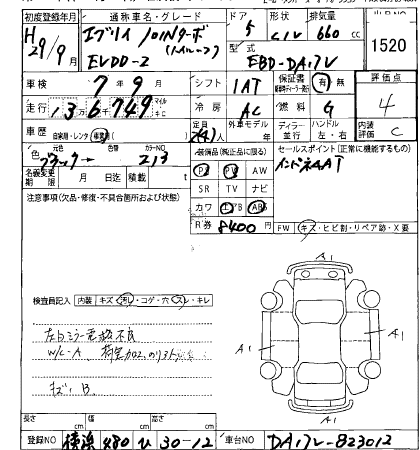 初度登録年月 通称車名・グレード ドア 形状 排気量
H29/9月 エブリイ JOINターボ 5 C/V 660cc 1520
EVDD-2 型式 EBD-DA17V
車検 7年9月 シフト 1AT 保証書 有 無 評価点
走行 136749 マイル キロ 冷房 AC 燃料 G 4
車歴 自家用・レンタ・事業用 定員 外車モデル ディーラー 並行 ハンドル 左・右 内装評価 C
色 元色 色替 カラーNO 装備品(純正品に限る) セールスポイント(正常に機能するもの)
ブラック 213 PS PW AW
名義変更期限 月 日迄 積載 t SR TV ナビ
注意事項(欠品・修復・不具合箇所および状態) カワ エアB ABS
R券 8400円 FW キズ・ヒビ割・リペア跡・X要
A1
検査員記入 内装 キズ・汚レ・コゲ・穴・スレ・キレ
左ドミラー電格不良 A1 A1
W/C-A
キズ B
A1
長さ cm 幅 cm 高さ cm
登録NO 横浜 480 ひ 30-12 車台NO DA17V-823012